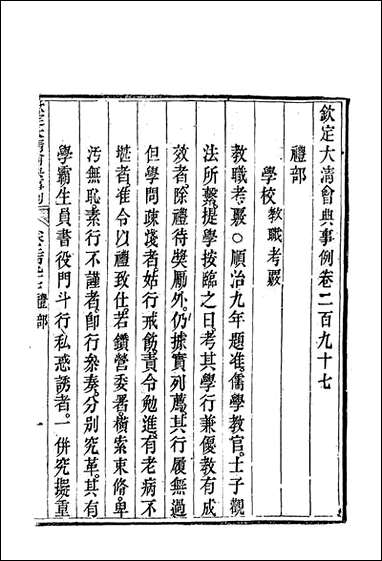 欽定大清會典事例卷二百九十七
禮部
學校教職考覈
教職考覈○順治九年題准儒學教官士子觀
法所繫提學按臨之日考其學行兼優教有成
效者除禮待奬勵外仍據實列薦其行履無過
但學問疎淺者姑行戒飭責令勉進有老病不
堪者准令以禮致仕若鑽營委署橫索束脩卑
汚無恥素行不謹者即行叅奏分別究革其有
學霸生員書役門斗行私惑誘者一併究擬重
禮部
一